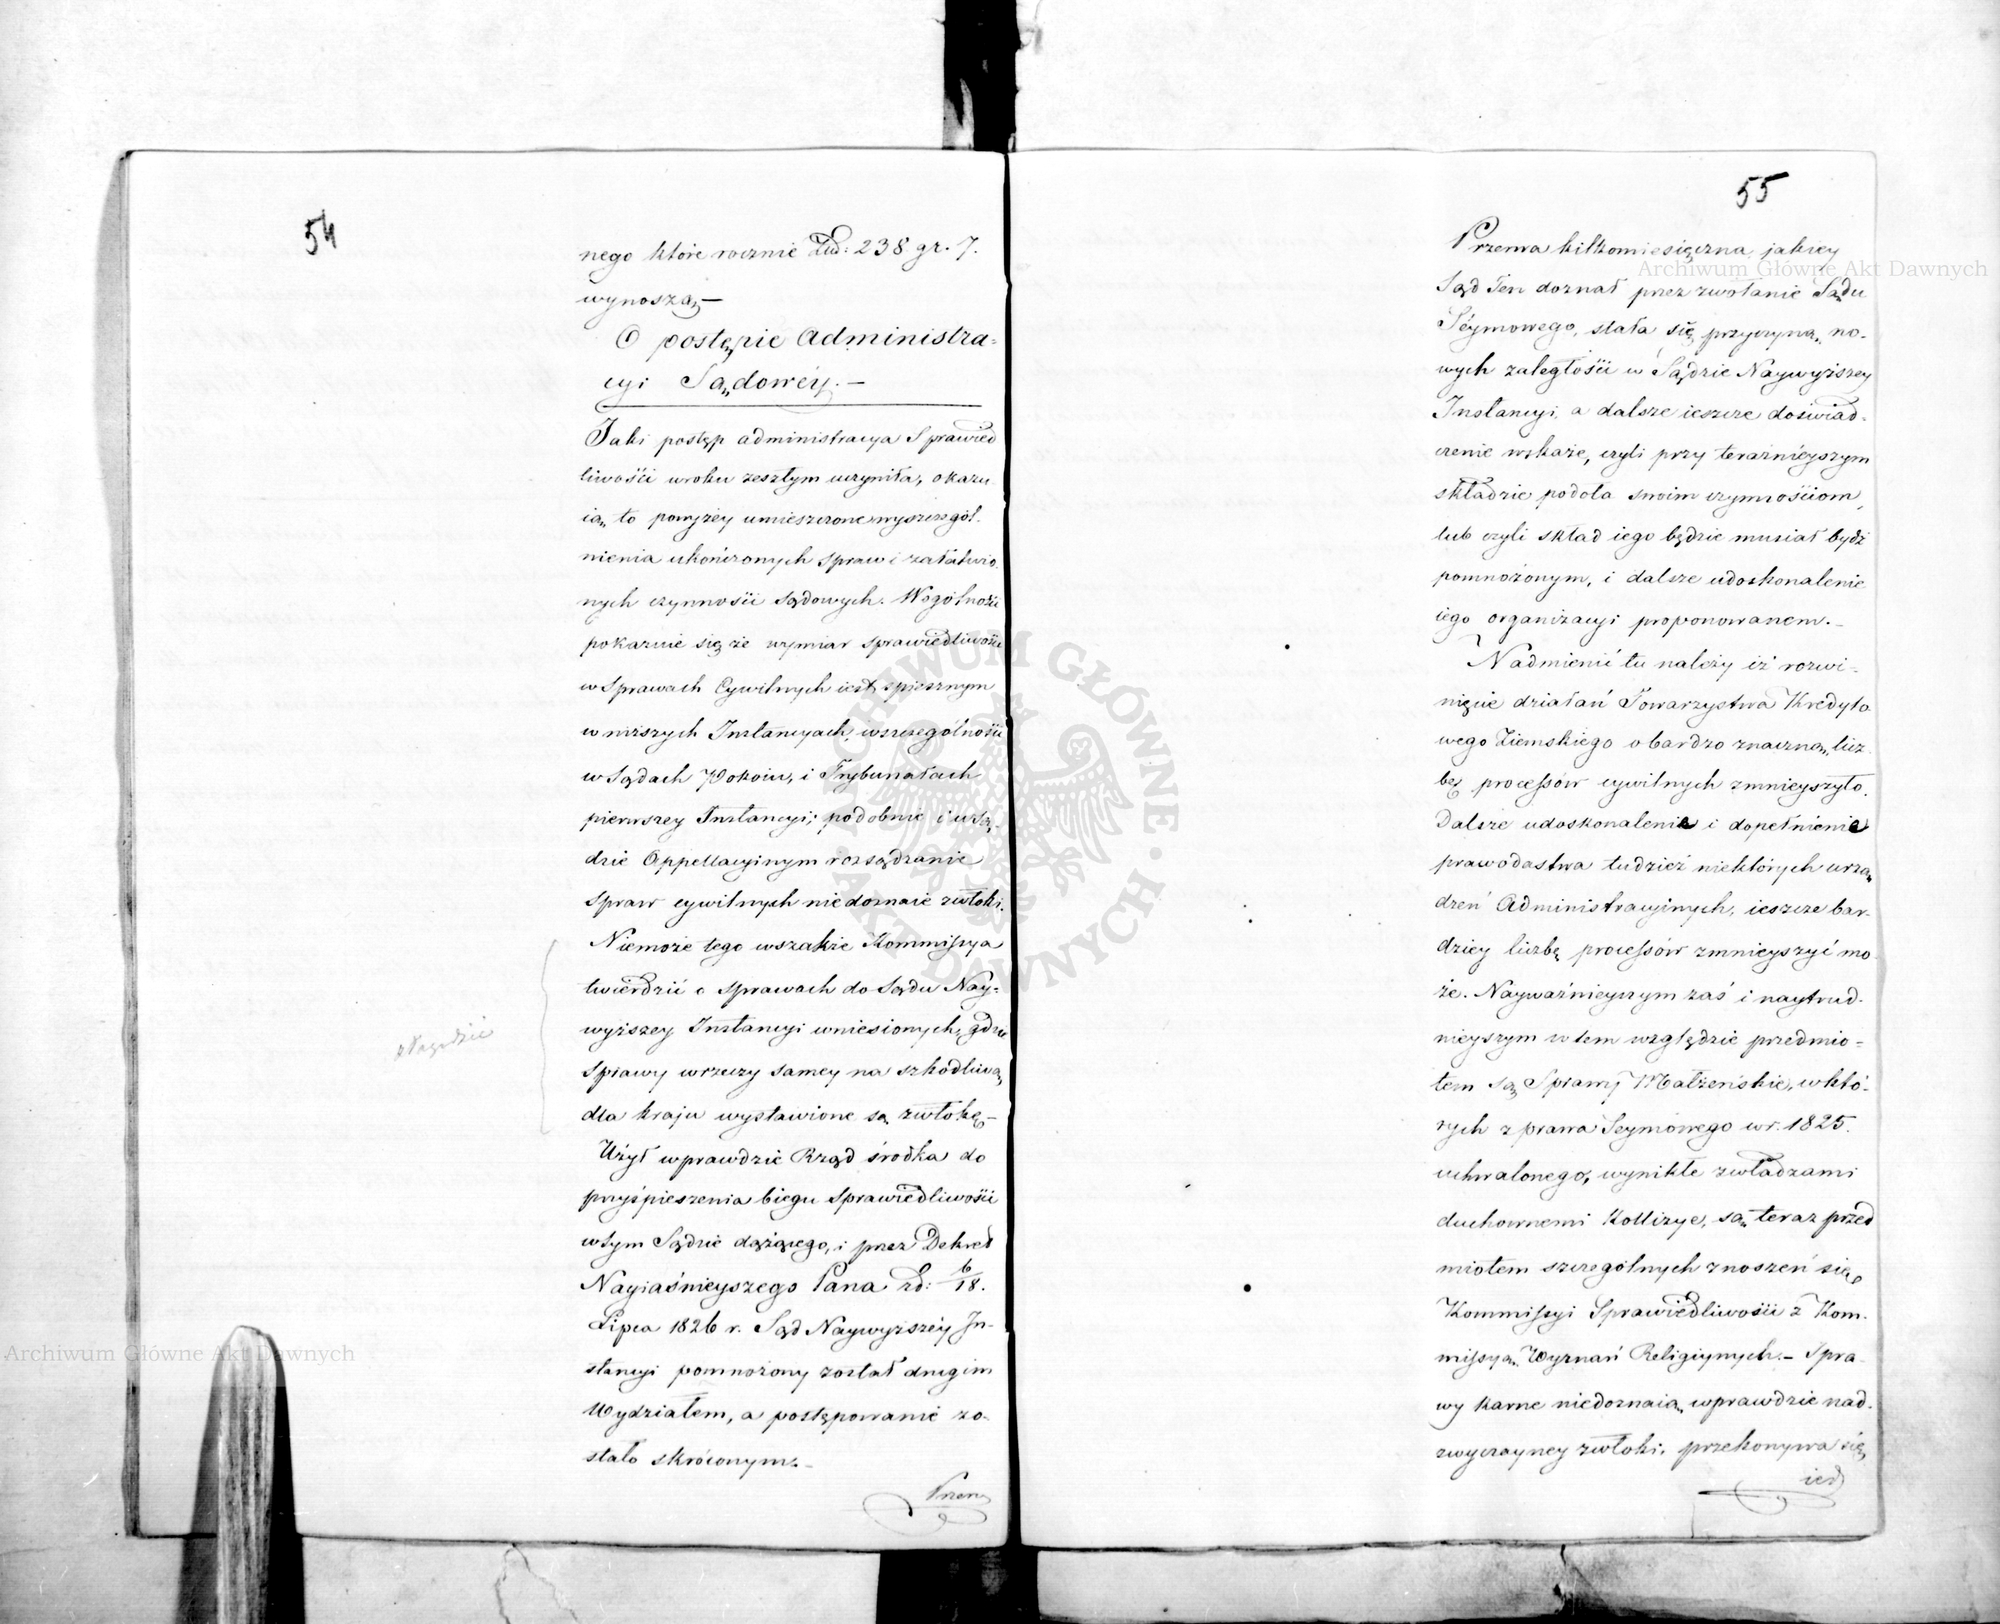 54
nego które rocznie Zło: 238 gr. 7.
wynoszą —
O postępie Administra-
cyi Sądowéy. —
Jaki postęp administracya Sprawied
liwości wroku zeszłym uczyniła, okazu
ią to powyżey umieszczone wyszczegól-
nienia ukończonych spraw i załatwio.
nych czynności sądowych. Wogólności
pokazuie się że wymiar sprawiedliwości
w Sprawach Cywilnych iest spiesznym
w niższych Instancyach, wszczególności
w Sądach Pokoiu, i Trybunałach
pierwszey Instancyi; podobnie i w Są-
dzie Appellacyinym rozsądzanie
spraw cywilnych niedoznaie zwłoki.
Niemoże tego wszakże Kommissya
twierdzić o sprawach do Sądu Nay-
wyższey Instancyi wniesionych, gdzie
sprawy wrzeczy samey na szkodliwą
dla kraju wystawione są zwłokę —
Użył wprawdzie Rząd środka do
przyśpieszenia biegu sprawiedliwości
wtym Sądzie dążącego, i przez Dekret
Nayiaśnieyszego Pana zd: 6/18.
Lipca 1826 r. Sąd Naywyższéy In-
stancyi pomnożony został drugim
Wydziałem, a postępowanie zo-
stało skróconym. —
Przerw
55
Przerwa kilkomiesięczna, jakiey
Sąd ten doznał przez zwołanie Sądu
Séymowego, stała się przyczyną no-
wych zaległości w Sądzie Naywyższey
Instancyi, a dalsze ieszcze doświad-
czenie wskaże, czyli przy teraźnieyszym
składzie podoła swoim czynnościom,
lub czyli skład iego będzie musiał bydź
pomnożonym, i dalsze udoskonalenie
iego organizacyi proponowanem. —
Nadmienić tu należy iż rozwi-
nięcie działań Towarzystwa Kredyto
wego Ziemskiego o bardzo znaczną licz
bę processów cywilnych zmnieyszyło.
Dalsze udoskonalenie i dopełnienie
prawodastwa tudzież niektórych urzą
dzeń Administracyinych, ieszcze bar-
dziey liczbę processów zmnieyszyć mo
że. Nayważnieyszym zaś i naytrud-
nieyszym w tem względzie przedmio-
tem są Sprawy Małżeńskie, w któ-
rych z prawa Seymowego w r. 1825.
uchwalonego, wynikłe zwładzami
duchownemi Kollizye, są teraz przed
miotem szczególnych znoszeń się
Kommissyi Sprawiedliwości z Kom-
missyą Wyznań Religiynych. — Spra-
wy karne niedoznaią wprawdzie nad-
zwyczayney zwłoki, przekonywa się
ied
Archiwum Główne Akt Dawnych
Archiwum Główne Akt Dawnych
ARCHIWUM GŁÓWNE · AKT DAWNYCH ·